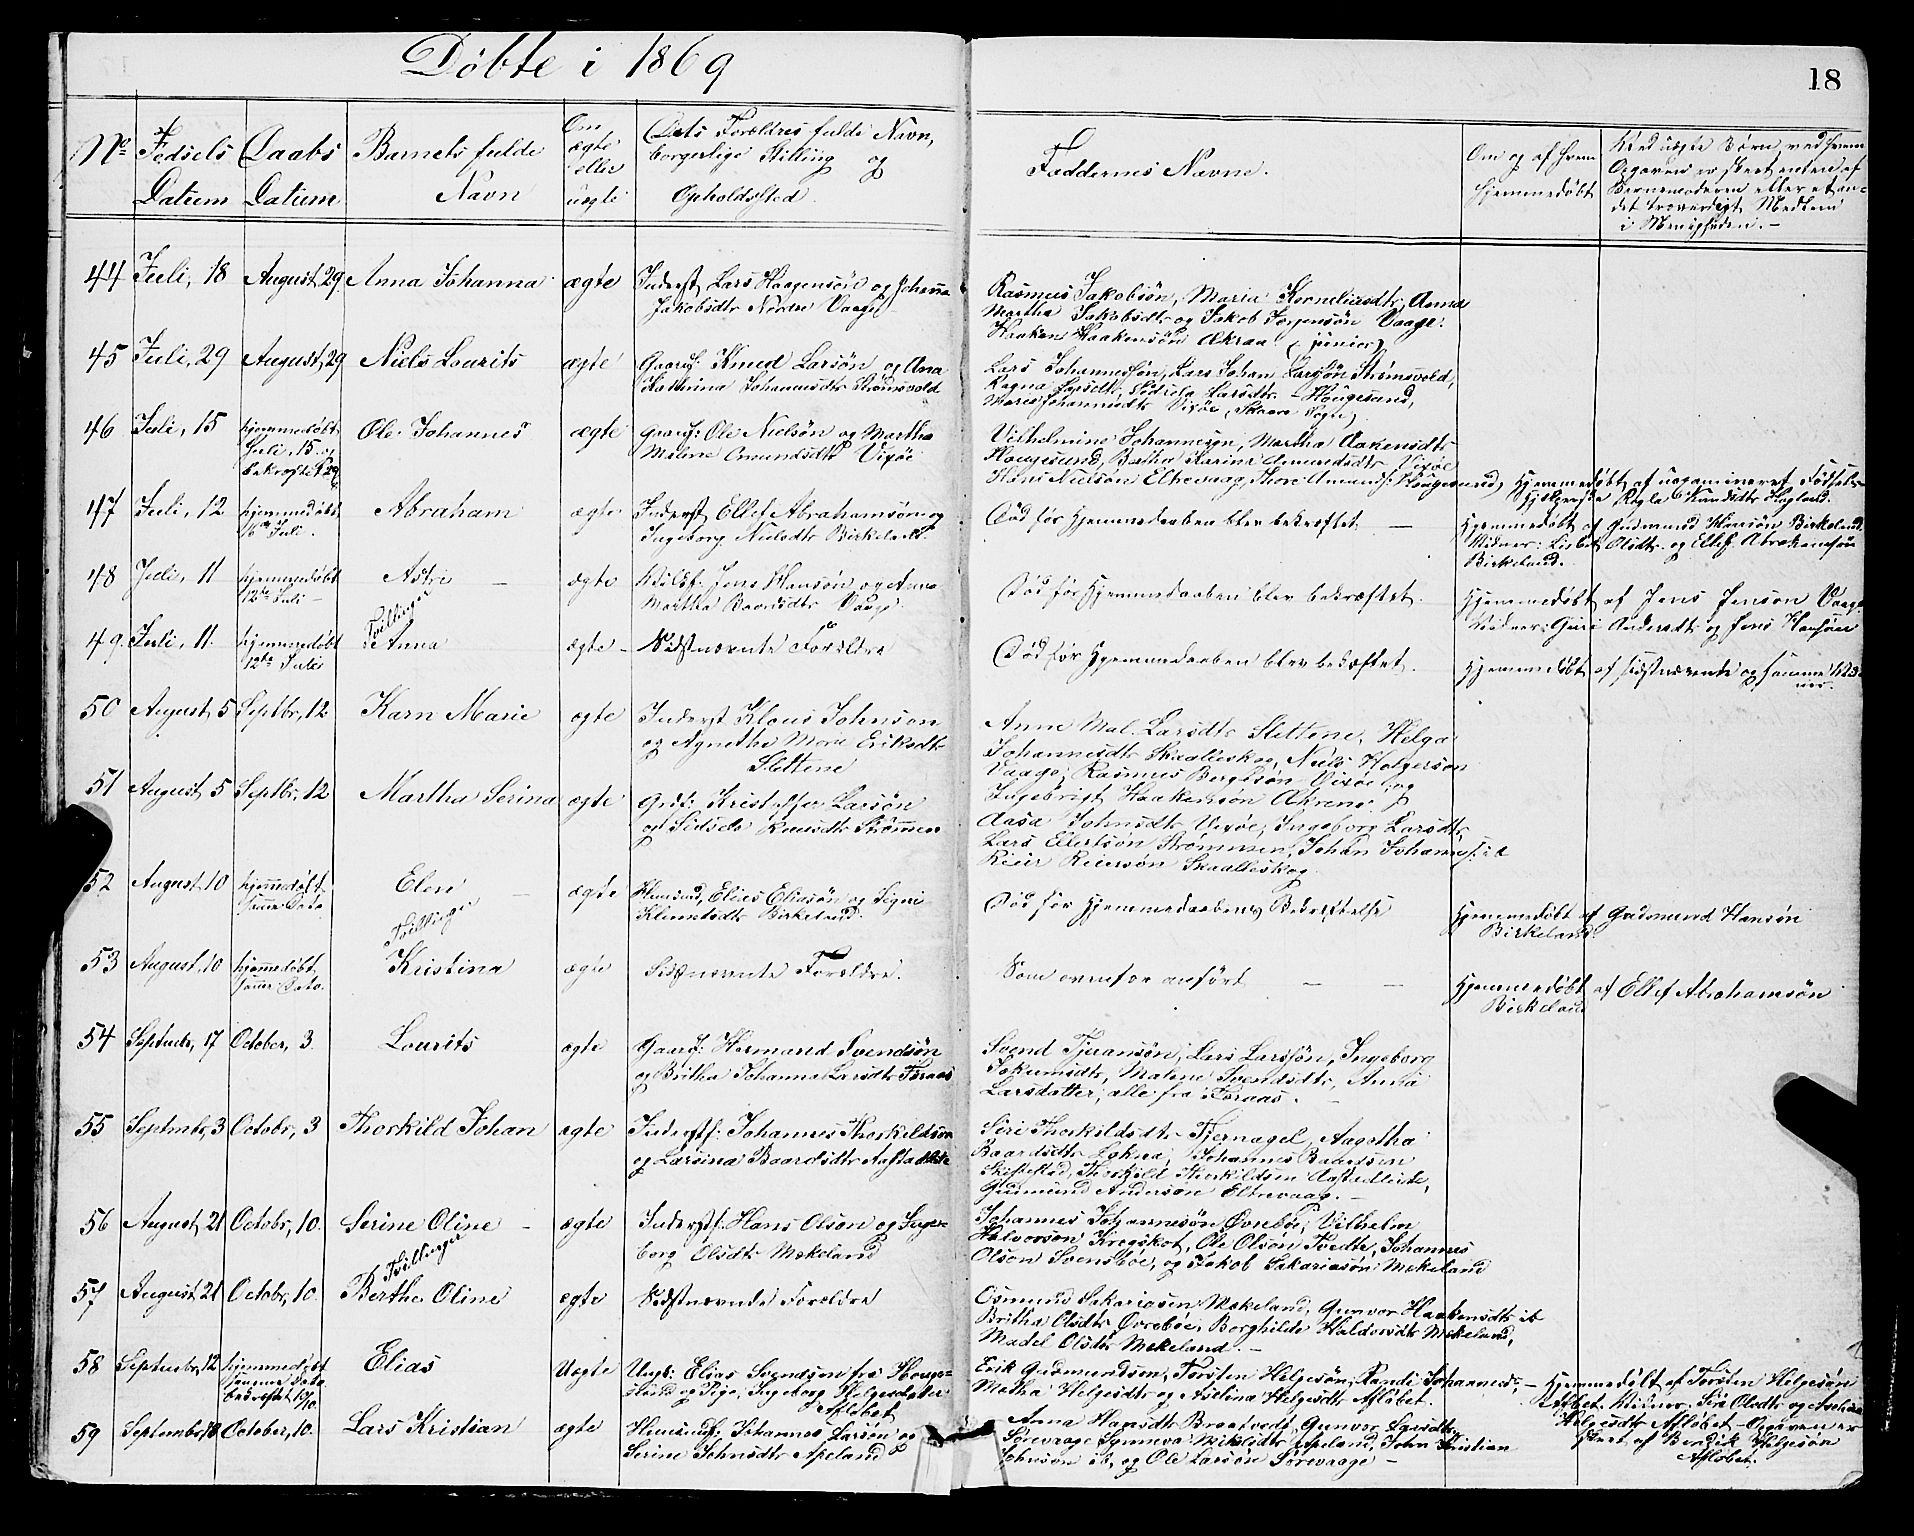 Döbte i 1869
18
No Fødsels Datum Daabs Datum Barnets fulde Navn Om ægte eller uægte Dets Forældres fulde Navn, borgerlige Stilling og Opholdssted.
Faddernes Navne. Om og af hvem hjemmedøbt Ved uægte Børn, ved hvem Opgaven er skeet enten af Barnemoderen eller et andet troværdigt Medlem i Menigheden.-
44 Juli, 18 August, 29 Anna Johanna ægte Inderst Lars Haagensön og Johanna
Jakobsdtr Nordre Vaage
Rasmus Jakobsön, Maria Korneliusdtr, Anna
Martha Jakobsdtr og Jakob Jörgensön Vaage.
Haaken Haakensön Økraa (junior)
45 Juli, 29 August, 29 Niels Lourits ægte Gaardf: Knud Larsön og Ana
Katharina Johannesdtr Strömsvold
Lars Johannesön, Lars Johan Larsön Strömsvold,
Ragna Larsdtr, Sidsela Larsdtr Hougesund,
Maria Johannesdtr Vixöe, Skaare Sogn,
46 Juli, 15 hjemmedöbt Juli, 15 og bekræftet 29/8 Ole Johannes ægte Gaardf: Ole Nielsön og Martha
Malene Amundsdtr Vixöe
Vilhelmine Johannesön, Martha Aakensdtr
Hougesund, Bertha Karina Amundsdtr Vixöe
Hans Nielsön Eltrevaag, Thore Amunds: Hougesund,
Hjemmedöbt af uexamineret Födsels-
hjelperske Ragla Knudsdtr Hogland.
47 Juli, 12 hjemmedöbt 16de Juli. Abraham ægte Inderst Ellef Abrahamsön og
Ingeborg Nielsdtr Birkeland.
Död för Hjemmedaaben blev bekræftet. -
Hjemmedöbt af Gudmund Hansön Birkeland
Vidner: Lisbet Olsdtr og Ellef Abrahamsön
Birkeland.
48 Juli, 11 hjemmedöbt 12te Juli - Astri - ægte Huusf: Jens Hansön og Anna
Martha Baarsdtr Vaage.
Död för Hjemmedaaben blev bekræftet.
Hjemmedöbt af Jens Jensön Vaage
Vidner: Guri Andersdtr og Jens Hansön
Tvillinger
49. Juli, 11. hjemmedöbt 12te Juli Anna ægte - Sidstnævnte Forældre
Död för Hjemmedaaben blev bekræftet.
Hjemmedöbt af sidstnævnte og samme Vid-
ner.
50 August, 5 Septbr, 12 Karn Marie ægte Inderst Klaus Johnsön
og Agnethe Marie Eriksdtr
Slettene
Anne Mal. Larsdtr Slettene, Helga
Johannesdtr Skaalleskog, Niels Holgersön
Vaage, Rasmus Bergesön Vixöe, og
Ingebrigt Haakensön Økrene
51 August, 5 Septbr, 12 Martha Serina ægte Grdf: Kristoffer Larsön
og Sidsela Knudsdtr Strömmen
Aasa Johnsdtr Vixöe, Ingeborg Larsdtr,
Lars Ellertsön Strömmen, Johan Johannes: ib
Reier Reiersön Skaalleskog
52 August, 10 hjemmedöbt samme Dato Elen - ægte Huusmd, Elias Eliasön og Sigri
Klemetsdtr Birkeland.
Död för Hjemmedaabens Bekræftelse
Hjemmedöbt af Gudmund Hansön
Birkeland.
Tvillinger
53 August, 10 hjemmedöbt samme Dato. Kristina ægte Sidstnævnte Forældre.
Som ovenfor anfört - -
Hjemmedöbt af Ellef Abrahamsön
Birkeland
54 Septmbr, 17 October, 3. Lourits ægte Gaardf: Hermand Svendsön
og Britha Johanna Larsdtr Foraas
Svend Tjeransön, Lars Larssön, Ingeborg
Jokumsdtr, Malene Svendsdtr, Anna
Larsdatter, alle fra Foraas. -
55 Septmbr, 3 Octobr, 3 Thorkild Johan ægte Inderstf: Johannes Thorkildsön
og Larsina Baardsdtr Aastadlete
Siri Thorkildsdtr Tjernagel, Aagotha
Baardsdtr Lokna, Johannes Baardsen
Skiftestad, Thorkild Thorkildsen Aastedleite,
Gudmund Andersön Eltrevaag. -
56 August, 21 Octobr, 10. Serine Oline - ægte Inderstf: Hans Olsön og Inge-
borg Olsdtr Mekeland
Johannes Johannesön Øvreböe, Vilhelm
Halvorsön Kregskot, Ole Olsön Tvedte, Johannes
Olson Svensböe, og Jakob Sakariasön Mekeland
Tvillinger
57 August, 21 Octobr, 10. Berthe Oline ægte Sidstnævnte Forældre
Osmund Sakariasen Mekeland, Gunvor Haakensdtr ib
Britha Olsdtr Øvreböe, Borghilde Haldorsdtr Mekeland,
Madel Olsdtr Mekeland. -
58 Septmbr, 12 hjemmedöbt samme Dato bekræftet 10/10 Elias Uægte Ungk: Elias Svendsen fra Houge-
sund og Pige, Ingeborg Helgesdatter
Aflöbet
Erik Gudmundson, Torsten Helgesön, Randi Johannesd:,
Metha Helgesdtr og Aselina Helgesdtr Aflöbet. -
Hjemmedöbt af Torsten Helgesön
Aflöbet. Vidner: Siri Olsdtr og
Helgesdtr Aflöbet - Opgaven er
skeet af Bendik Helgesön
Aflöbet.
59 Septembr, 18 October, 10. Lars Kristian ægte Huusmdf: Johannes Larsön og
Serine Johnsdtr Apeland
Anna Hansdtr Braatvedt, Gunvor Larsdtr
Sörevaage Synneva Mikkelsdtr Apeland, John Kristian
Johnson ib, og Ole Larsön Sörevaage -